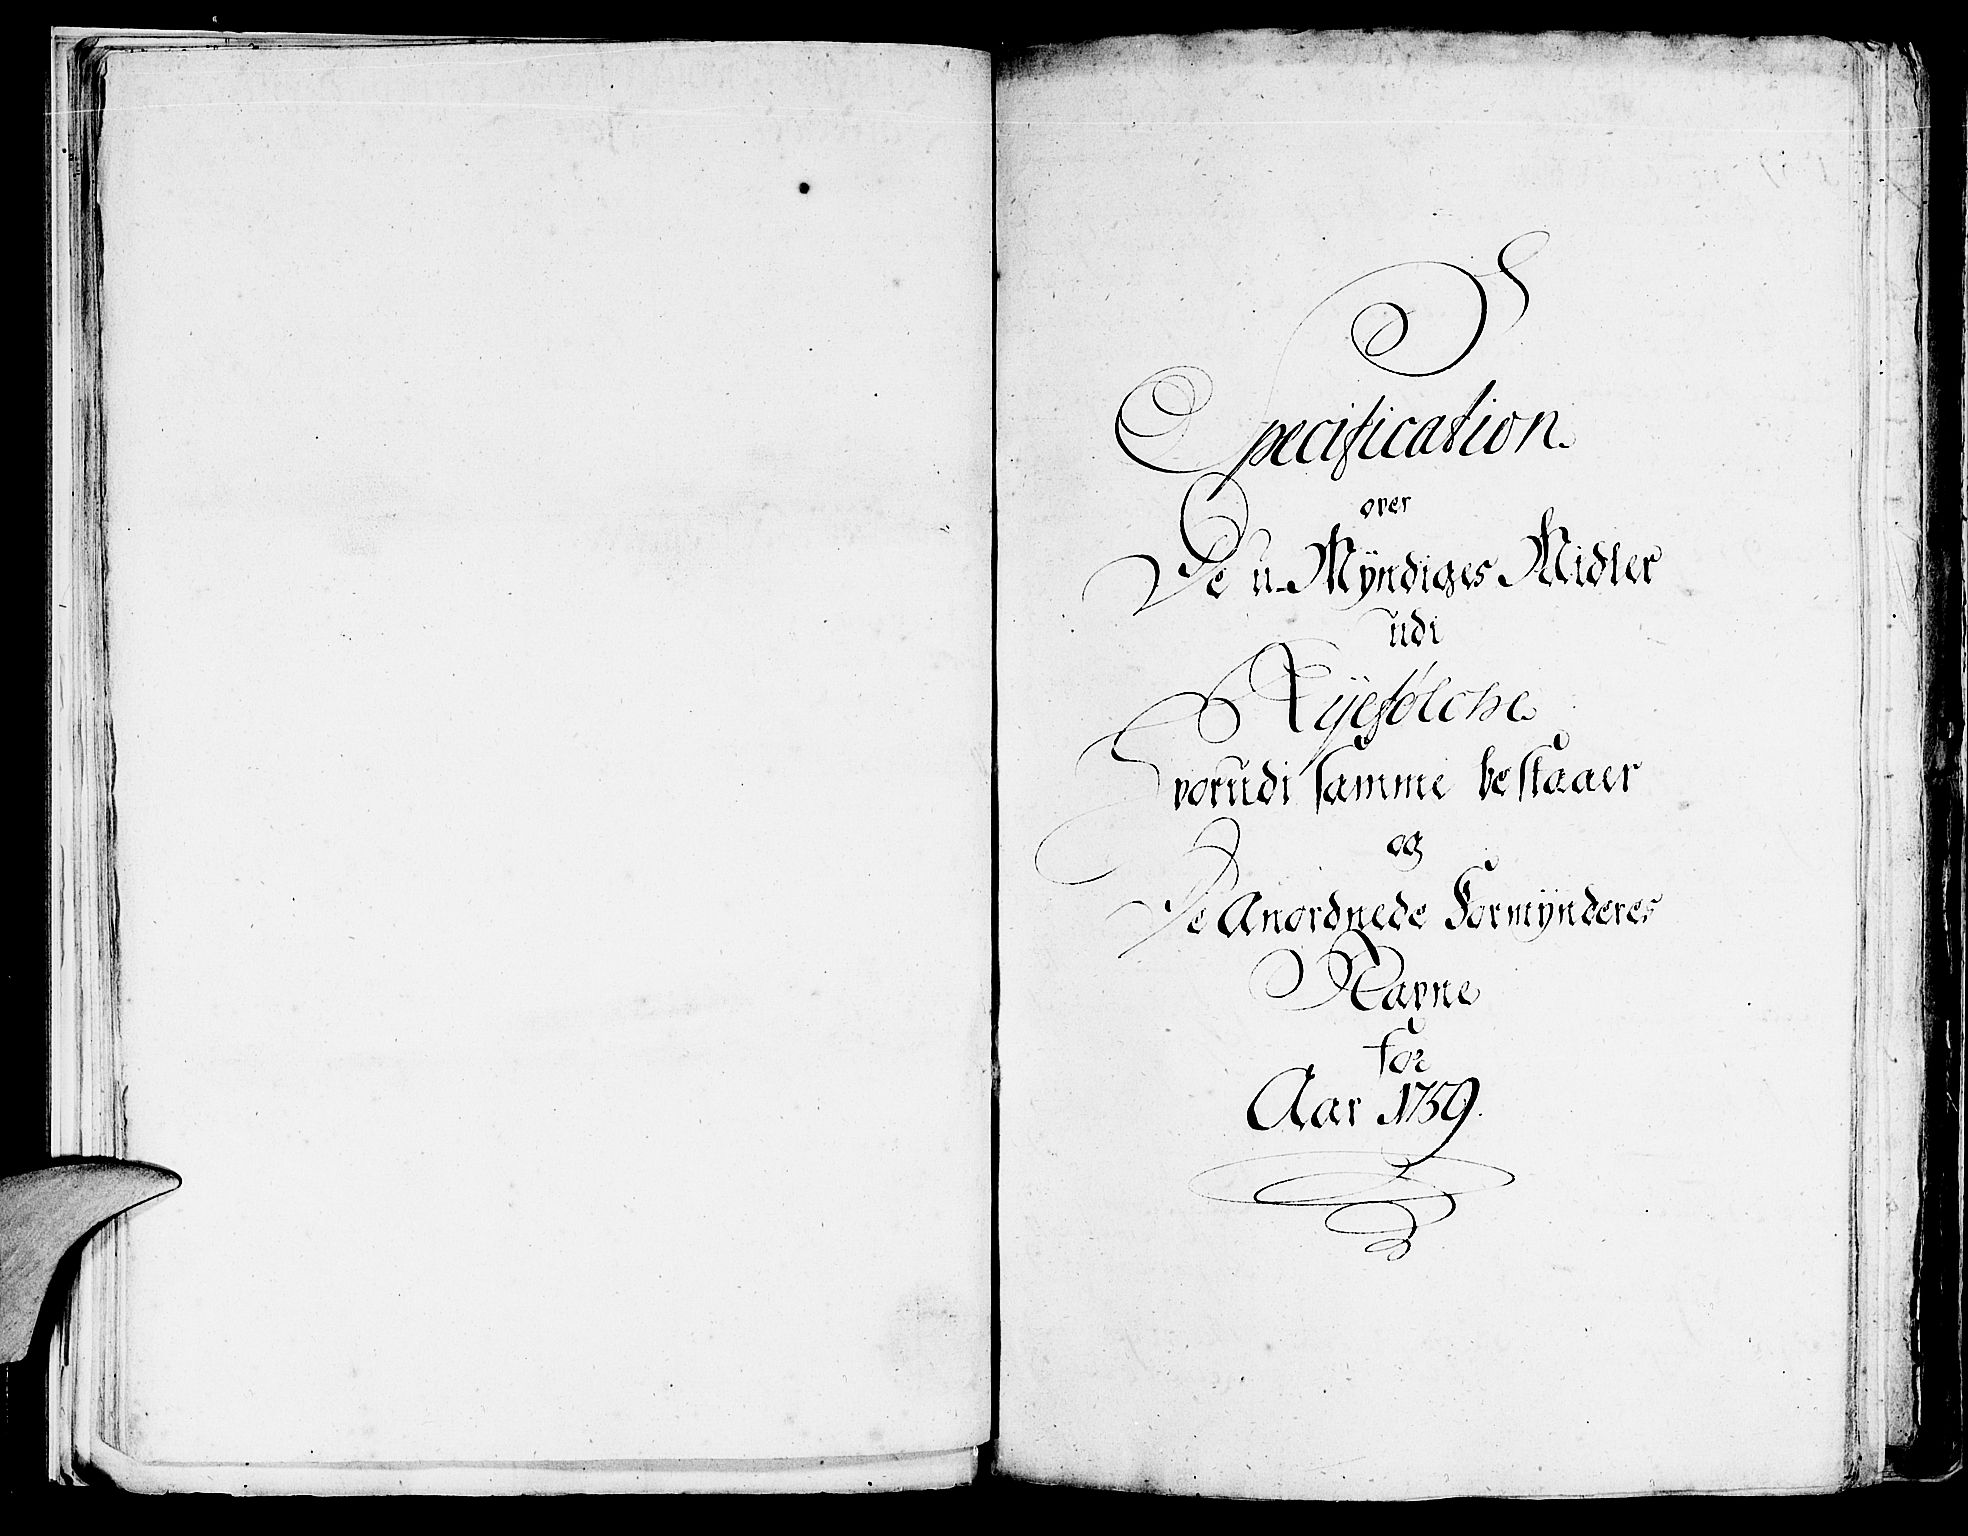 Specification
over
De u-Myndiges Midler
udi
Ryefølche
Hvorudi samme bestaaer
og
De Anordnede Formynderes
Navne
for
Aar 1759.